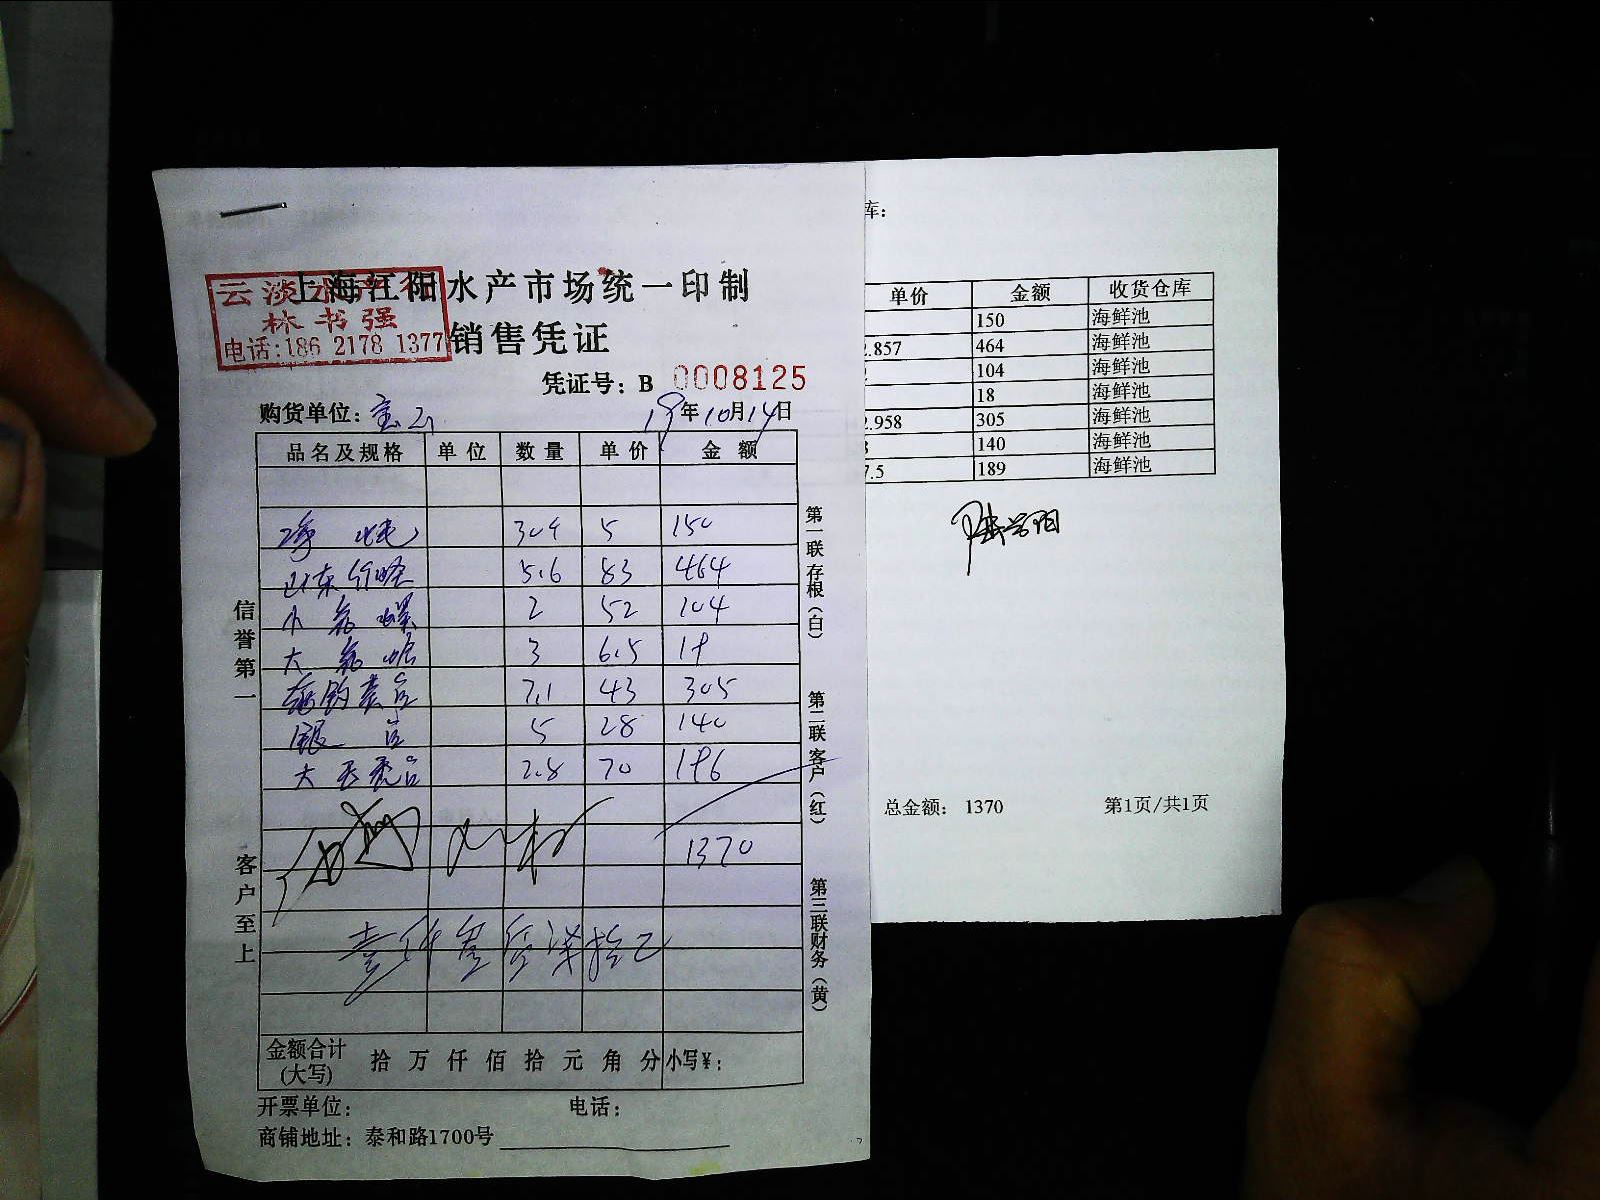 上海江阳水产市场统一印制
云淡水产行
林书强
电话:186 2178 1377
销售凭证
凭证号：B 0008125
购货单位：
19年10月14日
品名及规格 单位 数量 单价 金额
304 5 150
山东 5.6 83 464
小 螺 2 52 104
大 3 6.5 18
7.1 43 305
银 5 28 140
大 2.8 70 196
1370
壹仟叁佰柒拾
金额合计(大写) 拾 万 仟 佰 拾 元 角 分 小写¥:
开票单位： 电话：
商铺地址：泰和路1700号
信誉第一
客户至上
第一联存根(白)
第二联客户(红)
第三联财务(黄)
库：
单价 金额 收货仓库
150 海鲜池
2.857 464 海鲜池
104 海鲜池
18 海鲜池
2.958 305 海鲜池
140 海鲜池
7.5 189 海鲜池
总金额： 1370 第1页/共1页